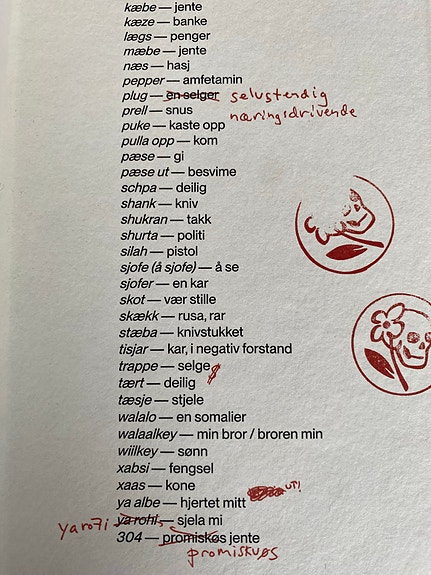 kæbe — jente
kæze — banke
lægs — penger
mæbe — jente
næs — hasj
pepper — amfetamin
plug — en selger selvstendig
næringsdrivende
prell — snus
puke — kaste opp
pulla opp — kom
pæse — gi
pæse ut — besvime
schpa — deilig
shank — kniv
shukran — takk
shurta — politi
silah — pistol
sjofe (å sjofe) — å se
sjofer — en kar
skot — vær stille
skækk — rusa, rar
stæba — knivstukket
tisjar — kar, i negativ forstand
trappe — selge $
tært — deilig
tæsje — stjele
walalo — en somalier
walaalkey — min bror / broren min
wiilkey — sønn
xabsi — fengsel
xaas — kone
ya albe — hjertet mitt UT!
yaro7i ya rohi — sjela mi
304 — promiskøs jente
promiskuøs